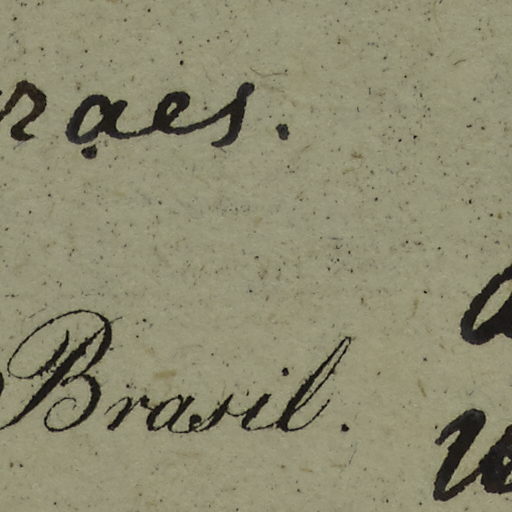 raes.
Brasil.